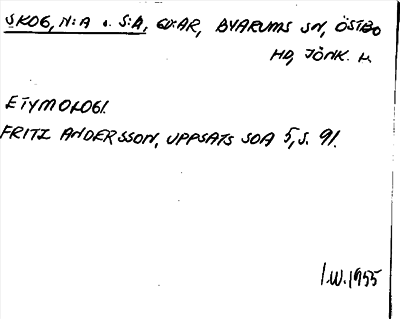 SKOG, N:A o. S:A, GDAR, BYARUMS SN, ÖSTBO
HD, JÖNK. L.
ETYMOLOGI.
FRITZ ANDERSSON, UPPSATS SOA 5, S. 91.
I.W. 1955